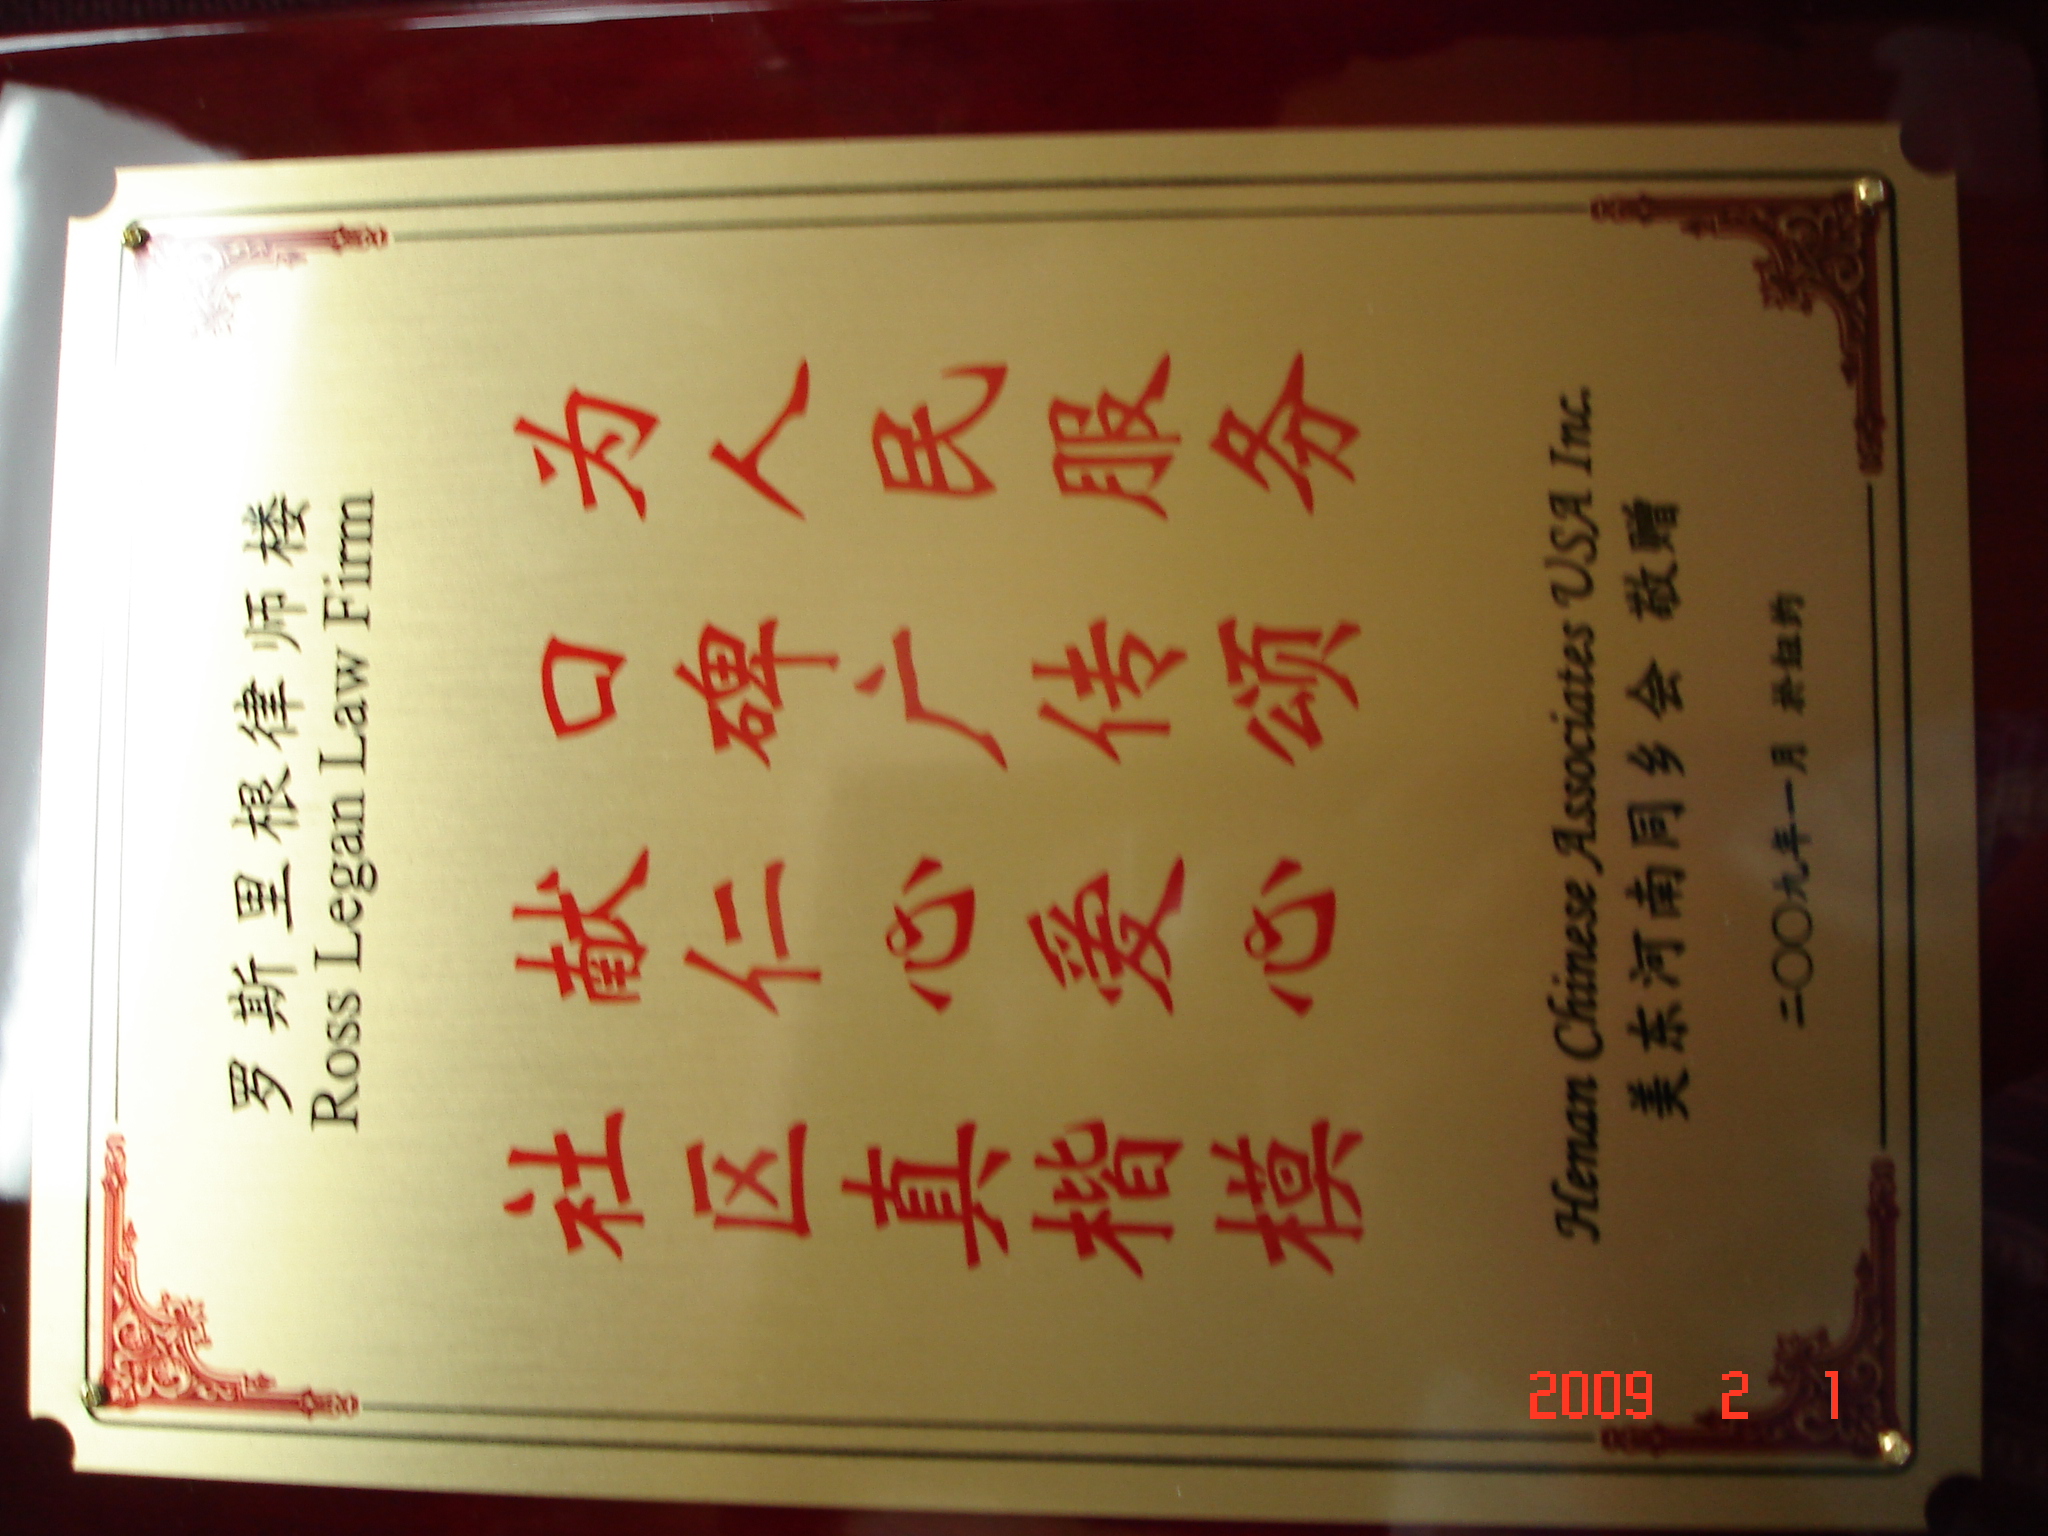 罗斯里根律师楼
Ross Legan Law Firm
为人民服务
口碑广传颂
献仁心爱心
社区真楷模
Henan Chinese Associates USA Inc.
美东河南同乡会 敬赠
二〇〇九年一月 於纽约
2009 2 1